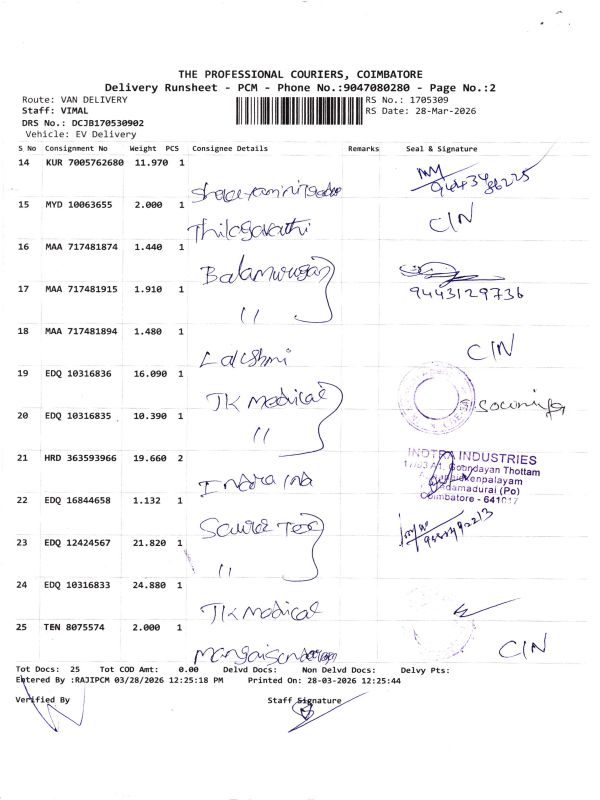 THE PROFESSIONAL COURIERS, COIMBATORE
Delivery Runsheet - PCM - Phone No.:9047080280 - Page No.:2
Route: VAN DELIVERY
Staff: VIMAL
DRS No.: DCJB170530902
Vehicle: EV Delivery
RS No.: 1705309
RS Date: 28-Mar-2026
S No Consignment No Weight PCS Consignee Details Remarks Seal & Signature
14 KUR 7005762680 11.970 1
15 MYD 10063655 2.000 1
Thilagavathi CIN
16 MAA 717481874 1.440 1
Balamurugan
17 MAA 717481915 1.910 1
11 9443129736
18 MAA 717481894 1.480 1
Lakshmi CIN
19 EDQ 10316836 16.090 1
TK Medical
20 EDQ 10316835 10.390 1
11
21 HRD 363593966 19.660 2
Indra Ind
INDTRA INDUSTRIES
Goundayan Thottam
Coimbatore - 641017
22 EDQ 16844658 1.132 1
23 EDQ 12424567 21.820 1
11
24 EDQ 10316833 24.880 1
TK Medical
25 TEN 8075574 2.000 1
CIN
Tot Docs: 25 Tot COD Amt: 0.00 Delvd Docs: Non Delvd Docs: Delvy Pts:
Entered By :RAJIPCM 03/28/2026 12:25:18 PM Printed On: 28-03-2026 12:25:44
Verified By Staff Signature